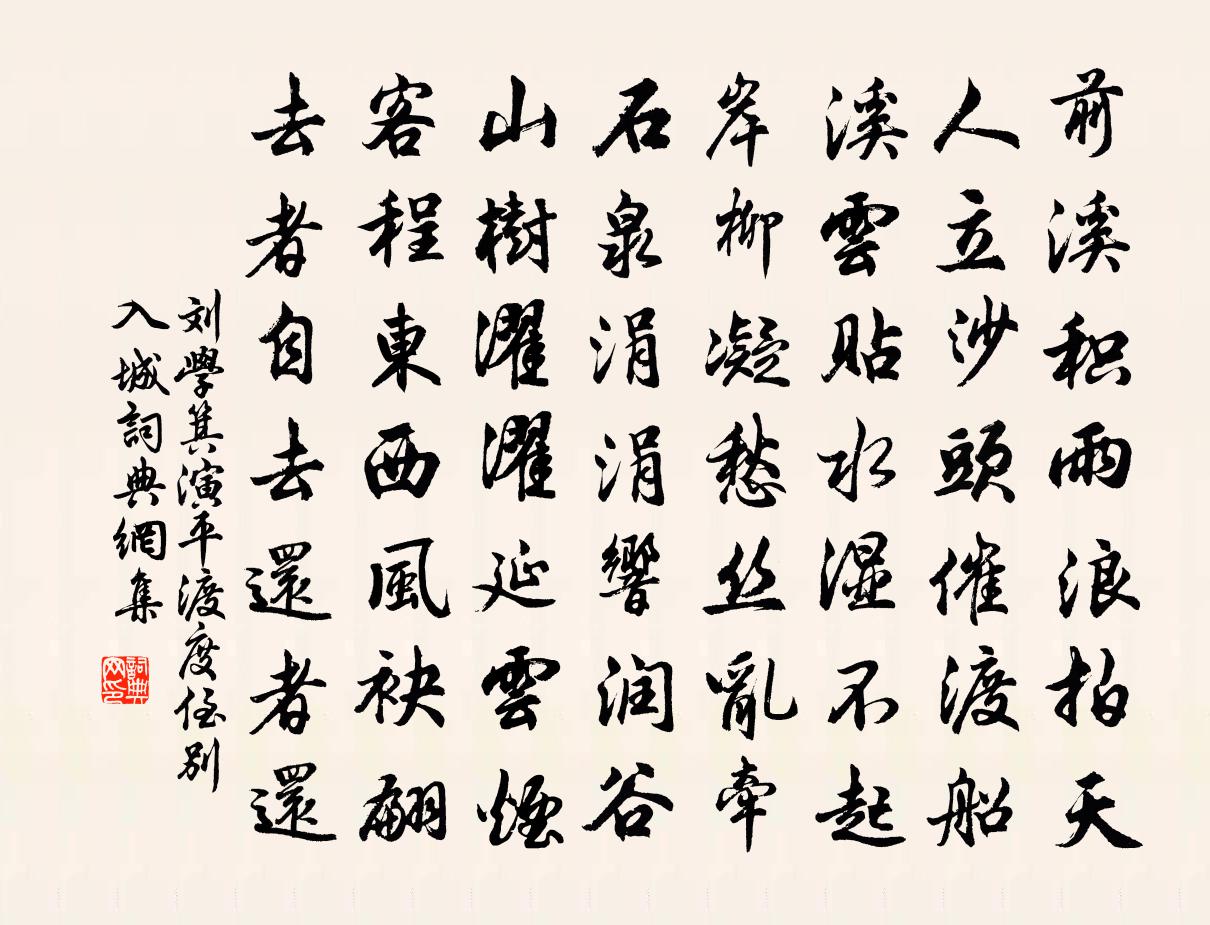 前溪积雨浪拍天
人立沙頭催渡船
溪雲貼水濕不起
岸柳凝愁丝亂牵
石泉涓涓響润谷
山樹濯濯延雲煙
客程東西風袂翩
去者自去還者還
刘學箕演平渡度侄别
入城詞典網集
詞典网印